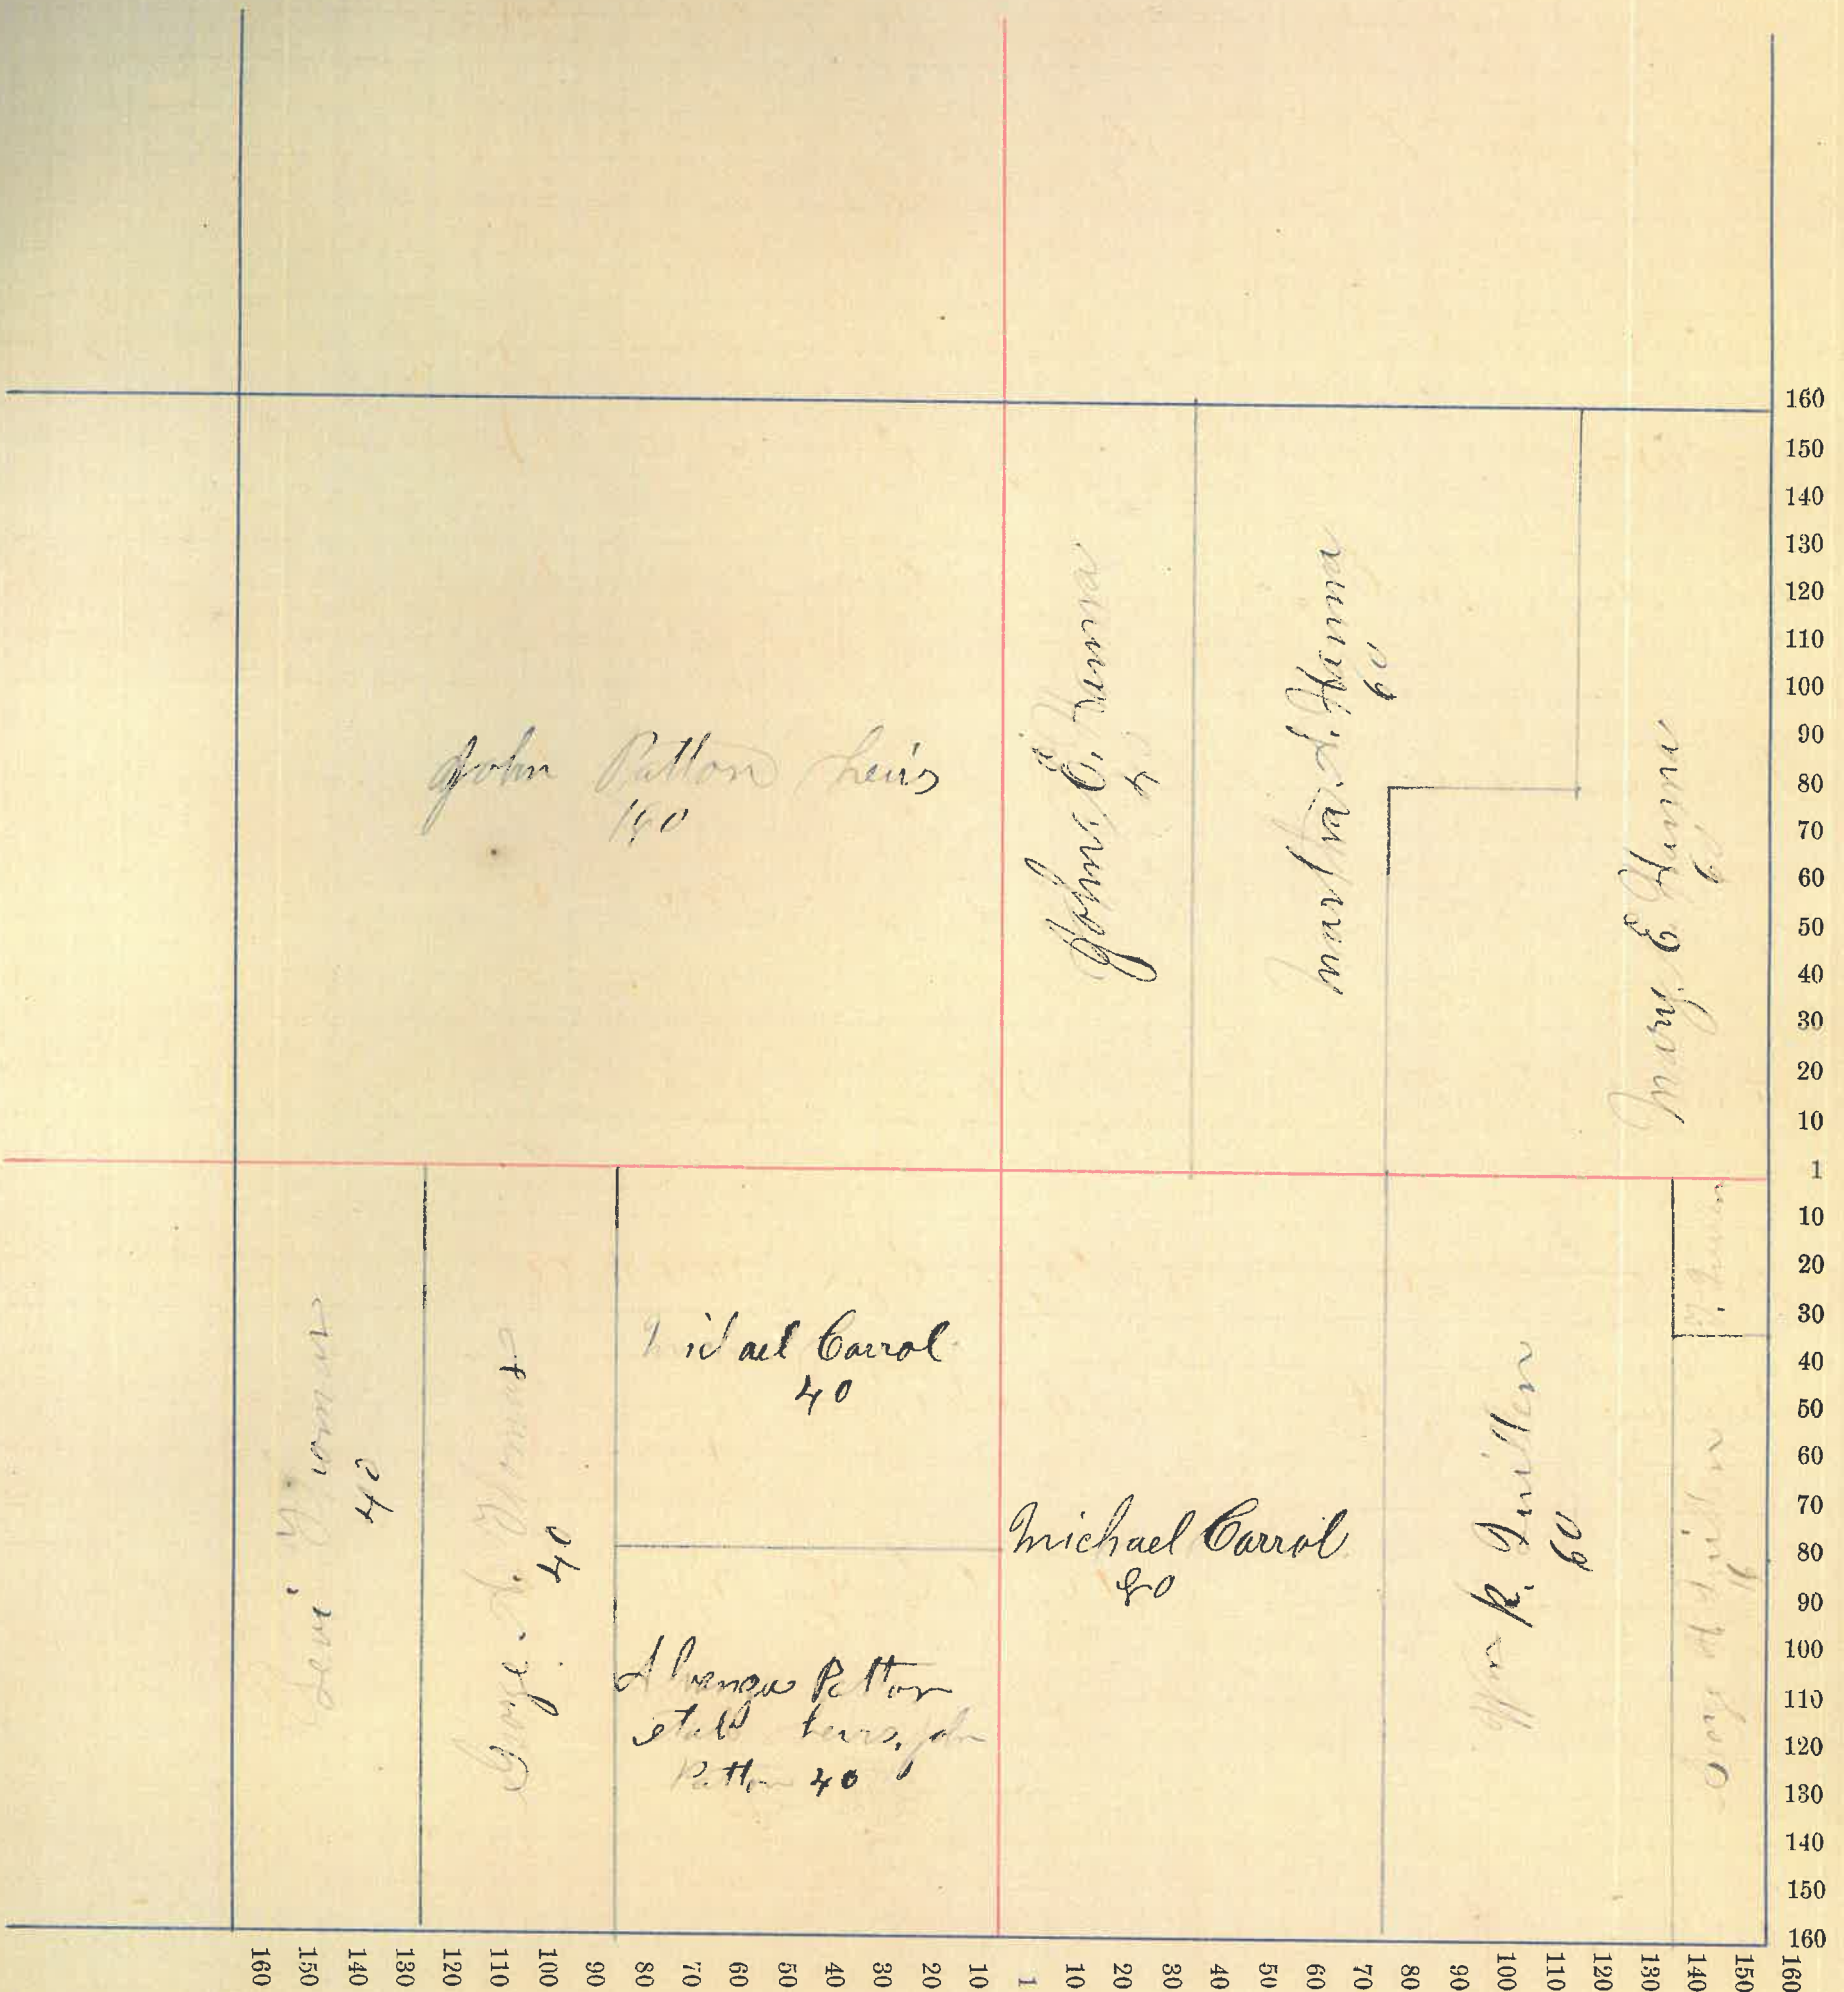 John Patton heirs
160
John E. Hanna
4
Martha J. Hanna
60
Mary E Hanna
6
Levi Roman
40
George
40
Michael Carrol
40
Patton
heirs, John
Patton 40
Michael Carrol
80
Wm R.
60
160
150
140
130
120
110
100
90
80
70
60
50
40
30
20
10
1
10
20
30
40
50
60
70
80
90
100
110
120
130
140
150
160
160 150 140 130 120 110 100 90 80 70 60 50 40 30 20 10 1 10 20 30 40 50 60 70 80 90 100 110 120 130 140 150 160